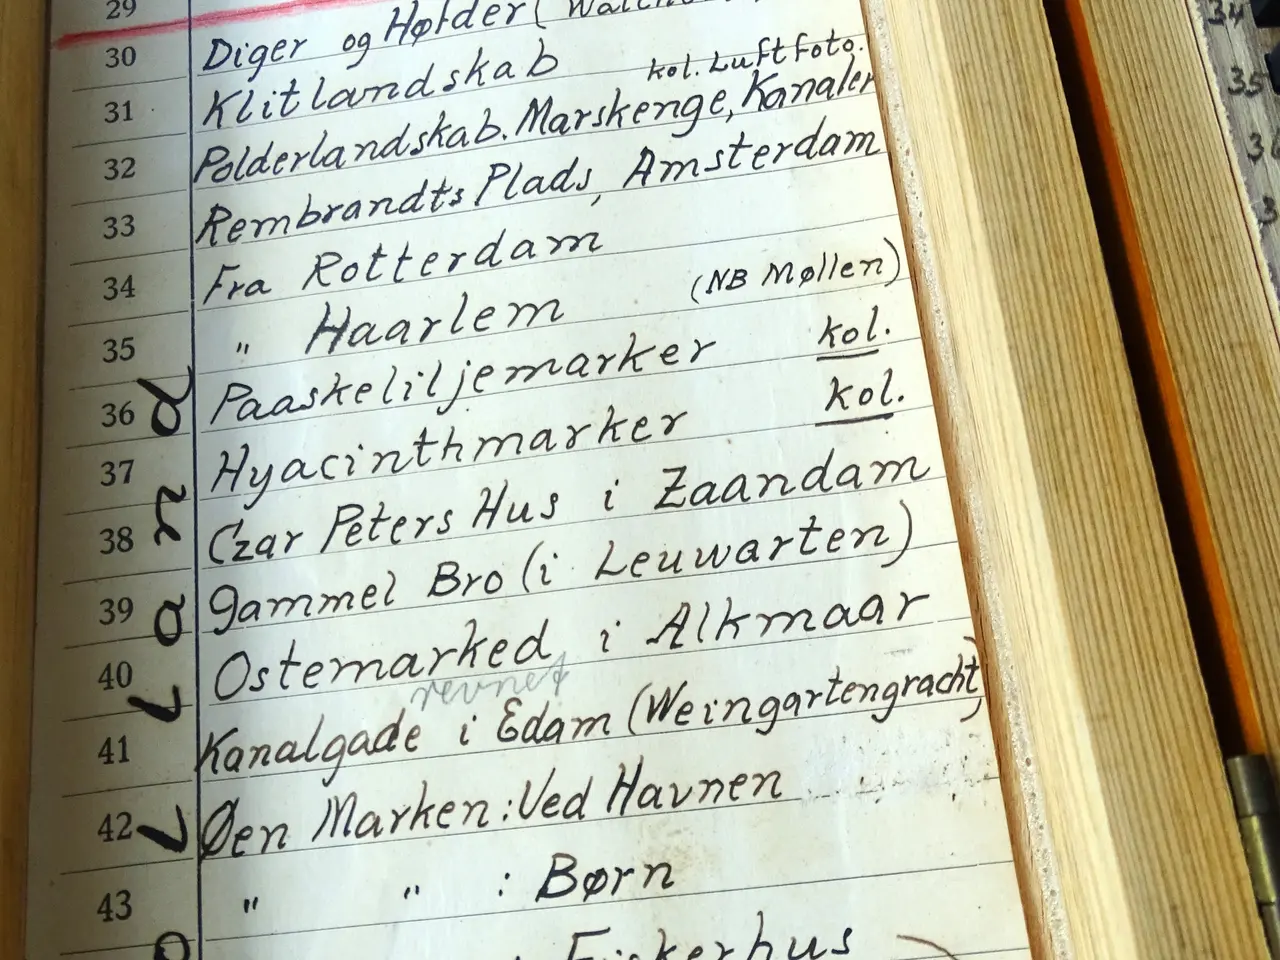 29
30 Diger og Høfder (Walche
31 Klitlandskab kol. Luftfoto.
32 Polderlandskab. Marskenge, Kanaler
33 Rembrandts Plads, Amsterdam
34 Fra Rotterdam
35 " Haarlem (NB Møllen)
36 Paaskeliljemarker kol.
37 Hyacinthmarker kol.
38 Czar Peters Hus i Zaandam
39 Gammel Bro (i Leuwarten)
40 Ostemarked i Alkmaar
revnet
41 Kanalgade i Edam (Weingartengracht)
42 Øen Marken: Ved Havnen
43 " " : Børn
: Fiskerhus
olland
34
35
36
3